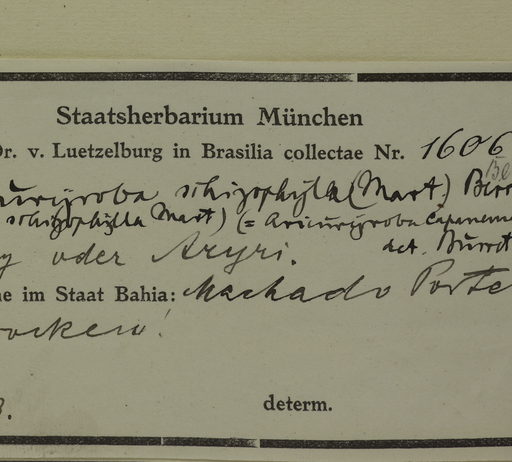 Staatsherbarium München
Dr. v. Luetzelburg in Brasilia collectae Nr. 1606
schizophylla (Mart.)
schizophylla Mart.) (= Aricuryroba Capanem
oder Aryri. det. Burret
im Staat Bahia: Machado Porte
trocken!
determ.